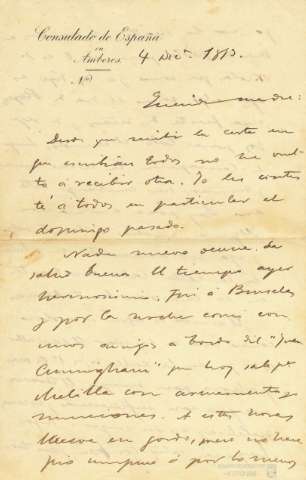 Consulado de España
en
Amberes
Nº
4 Dicº 1893.
Querida madre:
Desde que recibí la carta en
que escribían todos no he vuel-
to á recibir otra. Yo les contes
té á todos en particular el
domingo pasado.
Nada nuevo ocurre, de
salud bueno. El tiempo ayer
hermosísimo. Fuí á Bruselas
y por la noche comí con
unos amigos á bordo del "Juan
Cunningham" que hoy sale pª
Melilla con armamentos y
municiones. A estas horas
llueve en gordo, pero no hace
frío ninguno ó por lo menos